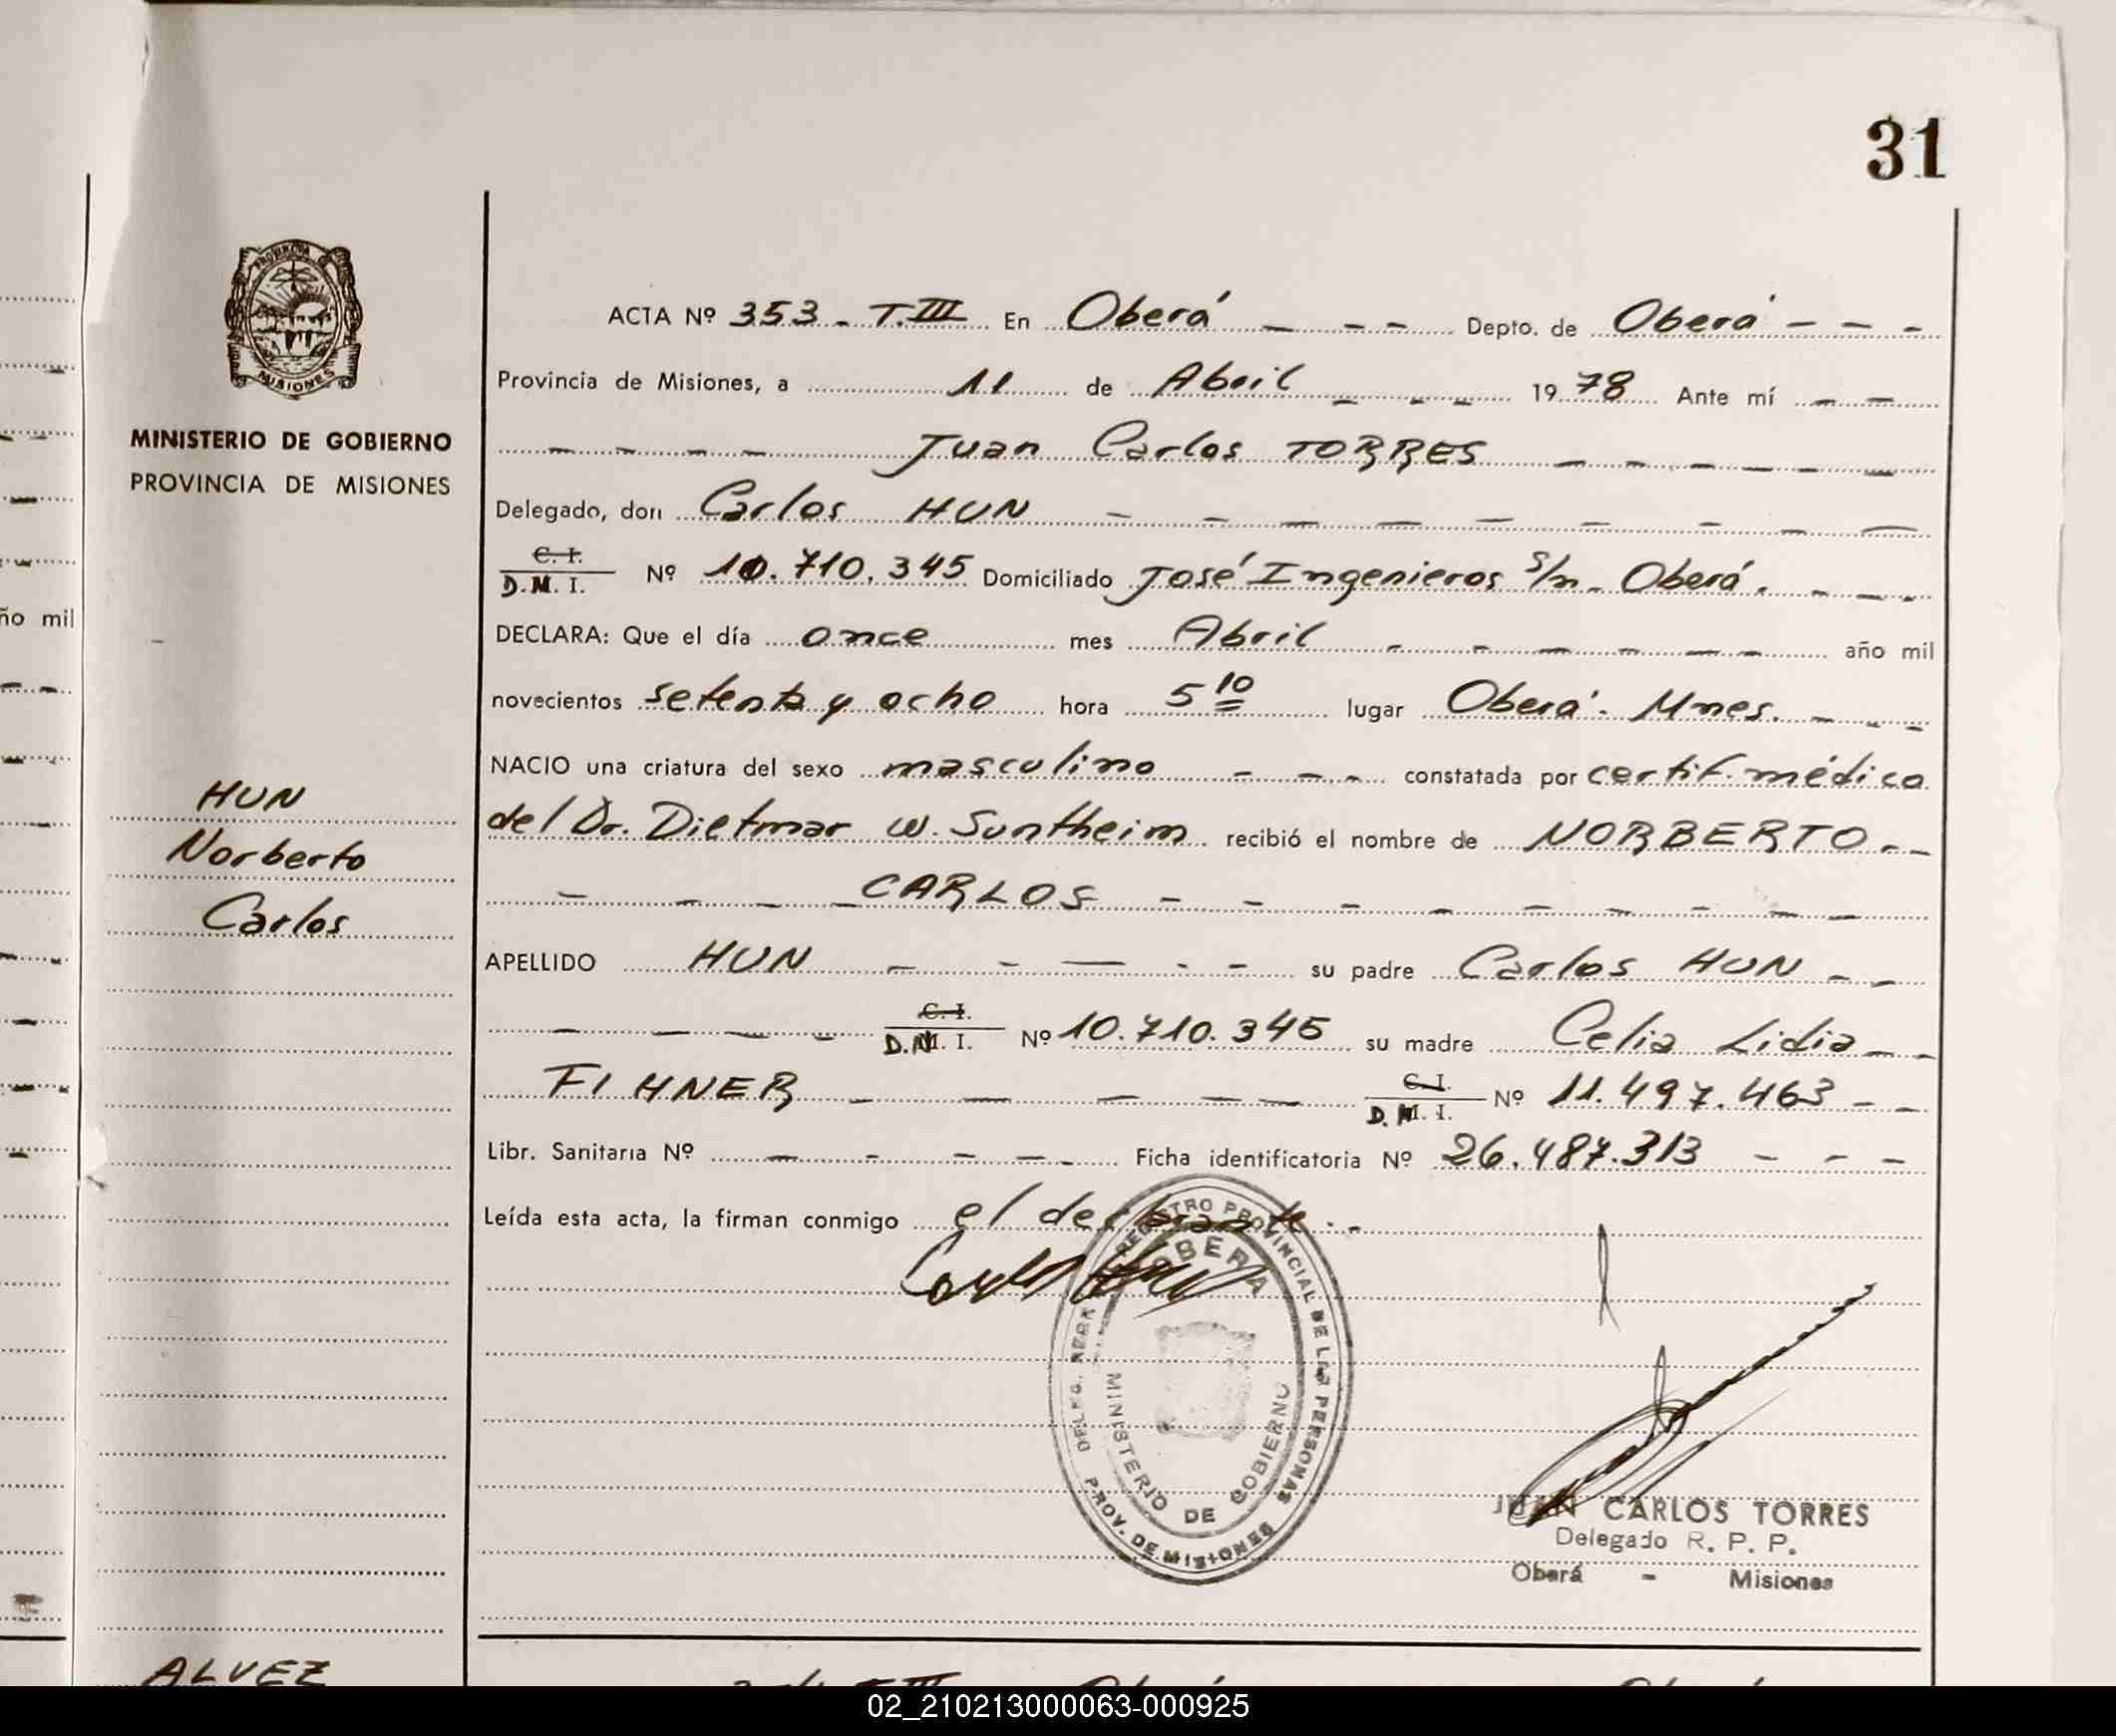 31
PROVINCIA
MISIONES
MINISTERIO DE GOBIERNO
PROVINCIA DE MISIONES
ño mil
HUN
Norberto
Carlos
ACTA Nº 353 - T.III En Oberá - - - Depto. de Oberá - - -
Provincia de Misiones, a 11 de Abril - - - 1978 Ante mí - -
- - - - Juan Carlos TORRES - - - - - -
Delegado, don Carlos HUN - - - - - - - - -
C. I.
D.M. I. Nº 10.710.345 Domiciliado José Ingenieros s/n. Oberá. - - -
DECLARA: Que el día once mes Abril - - - - - - año mil
novecientos setenta y ocho hora 5 10 lugar Oberá - Mnes. - - -
NACIO una criatura del sexo masculino - - - constatada por certif. médico
del Dr. Dietmar W. Suntheim recibió el nombre de NORBERTO - -
- - - - CARLOS - - - - - - - - -
APELLIDO HUN - - - - - su padre Carlos HUN - -
- - - - C. I.
D.M. I. Nº 10.710.345 su madre Celia Lidia - -
FIHNER - - - - - C. I.
D. M. I. Nº 11.497.463 - -
Libr. Sanitaria Nº - - - - Ficha identificatoria Nº 26.487.313 - - -
Leída esta acta, la firman conmigo el declarante. -
REGISTRO PROVINCIAL DE LAS PERSONAS
OBERA
MINISTERIO DE GOBIERNO
PROV. DE MISIONES
JUAN CARLOS TORRES
Delegado R. P. P.
Oberá - Misiones
ALVEZ
02_210213000063-000925